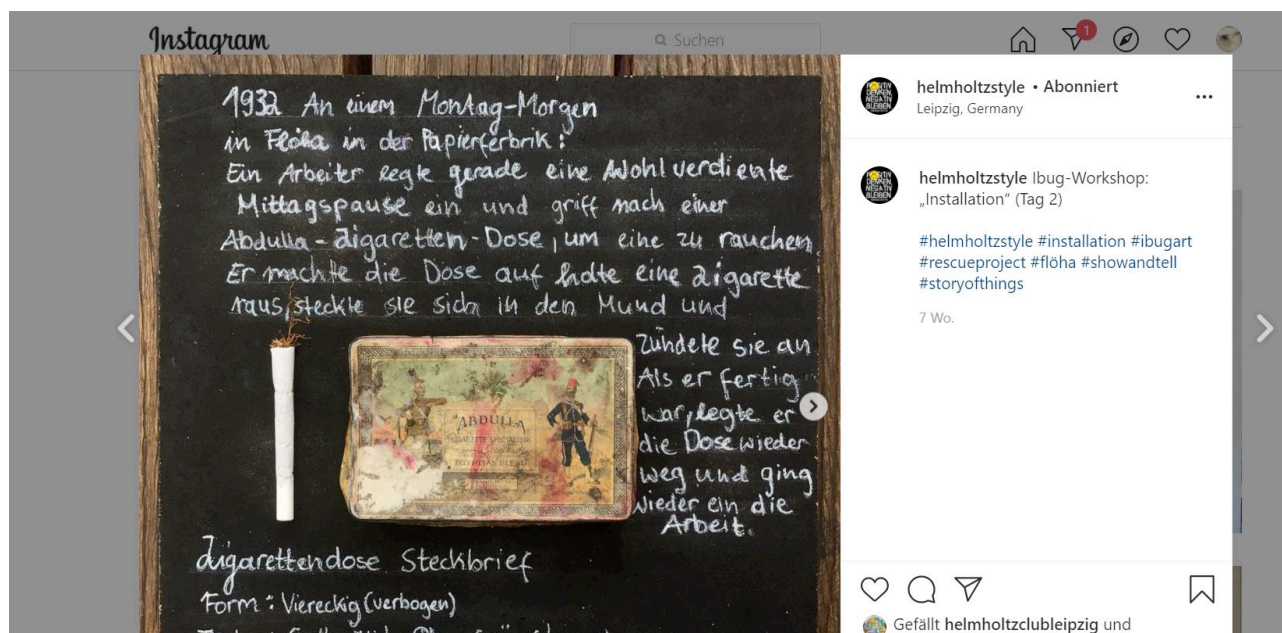 Instagram
Suchen
1
1932 An einem Montag-Morgen
in Flöha in der Papierferbrik:
Ein Arbeiter legte gerade eine Wohl verdiente
Mittagspause ein und griff nach einer
Abdulla-Zigaretten-Dose, um eine zu rauchen.
Er machte die Dose auf hohte eine Zigarette
raus, steckte sie sich in den Mund und
zündete sie an
Als er fertig
war, legte er
die Dose wieder
weg und ging
wieder ein die
Arbeit.
ABDULLA
CIGARETTE SPECIALISTS
EGYPTIAN BLEND
Zigarettendose Steckbrief
Form: Viereckig (verbogen)
helmholtzstyle • Abonniert
Leipzig, Germany
POSITIV
DENKEN,
NEGATIV
BLEIBEN
helmholtzstyle Ibug-Workshop:
„Installation“ (Tag 2)
#helmholtzstyle #installation #ibugart
#rescueproject #flöha #showandtell
#storyofthings
7 Wo.
Gefällt helmholtzclubleipzig und